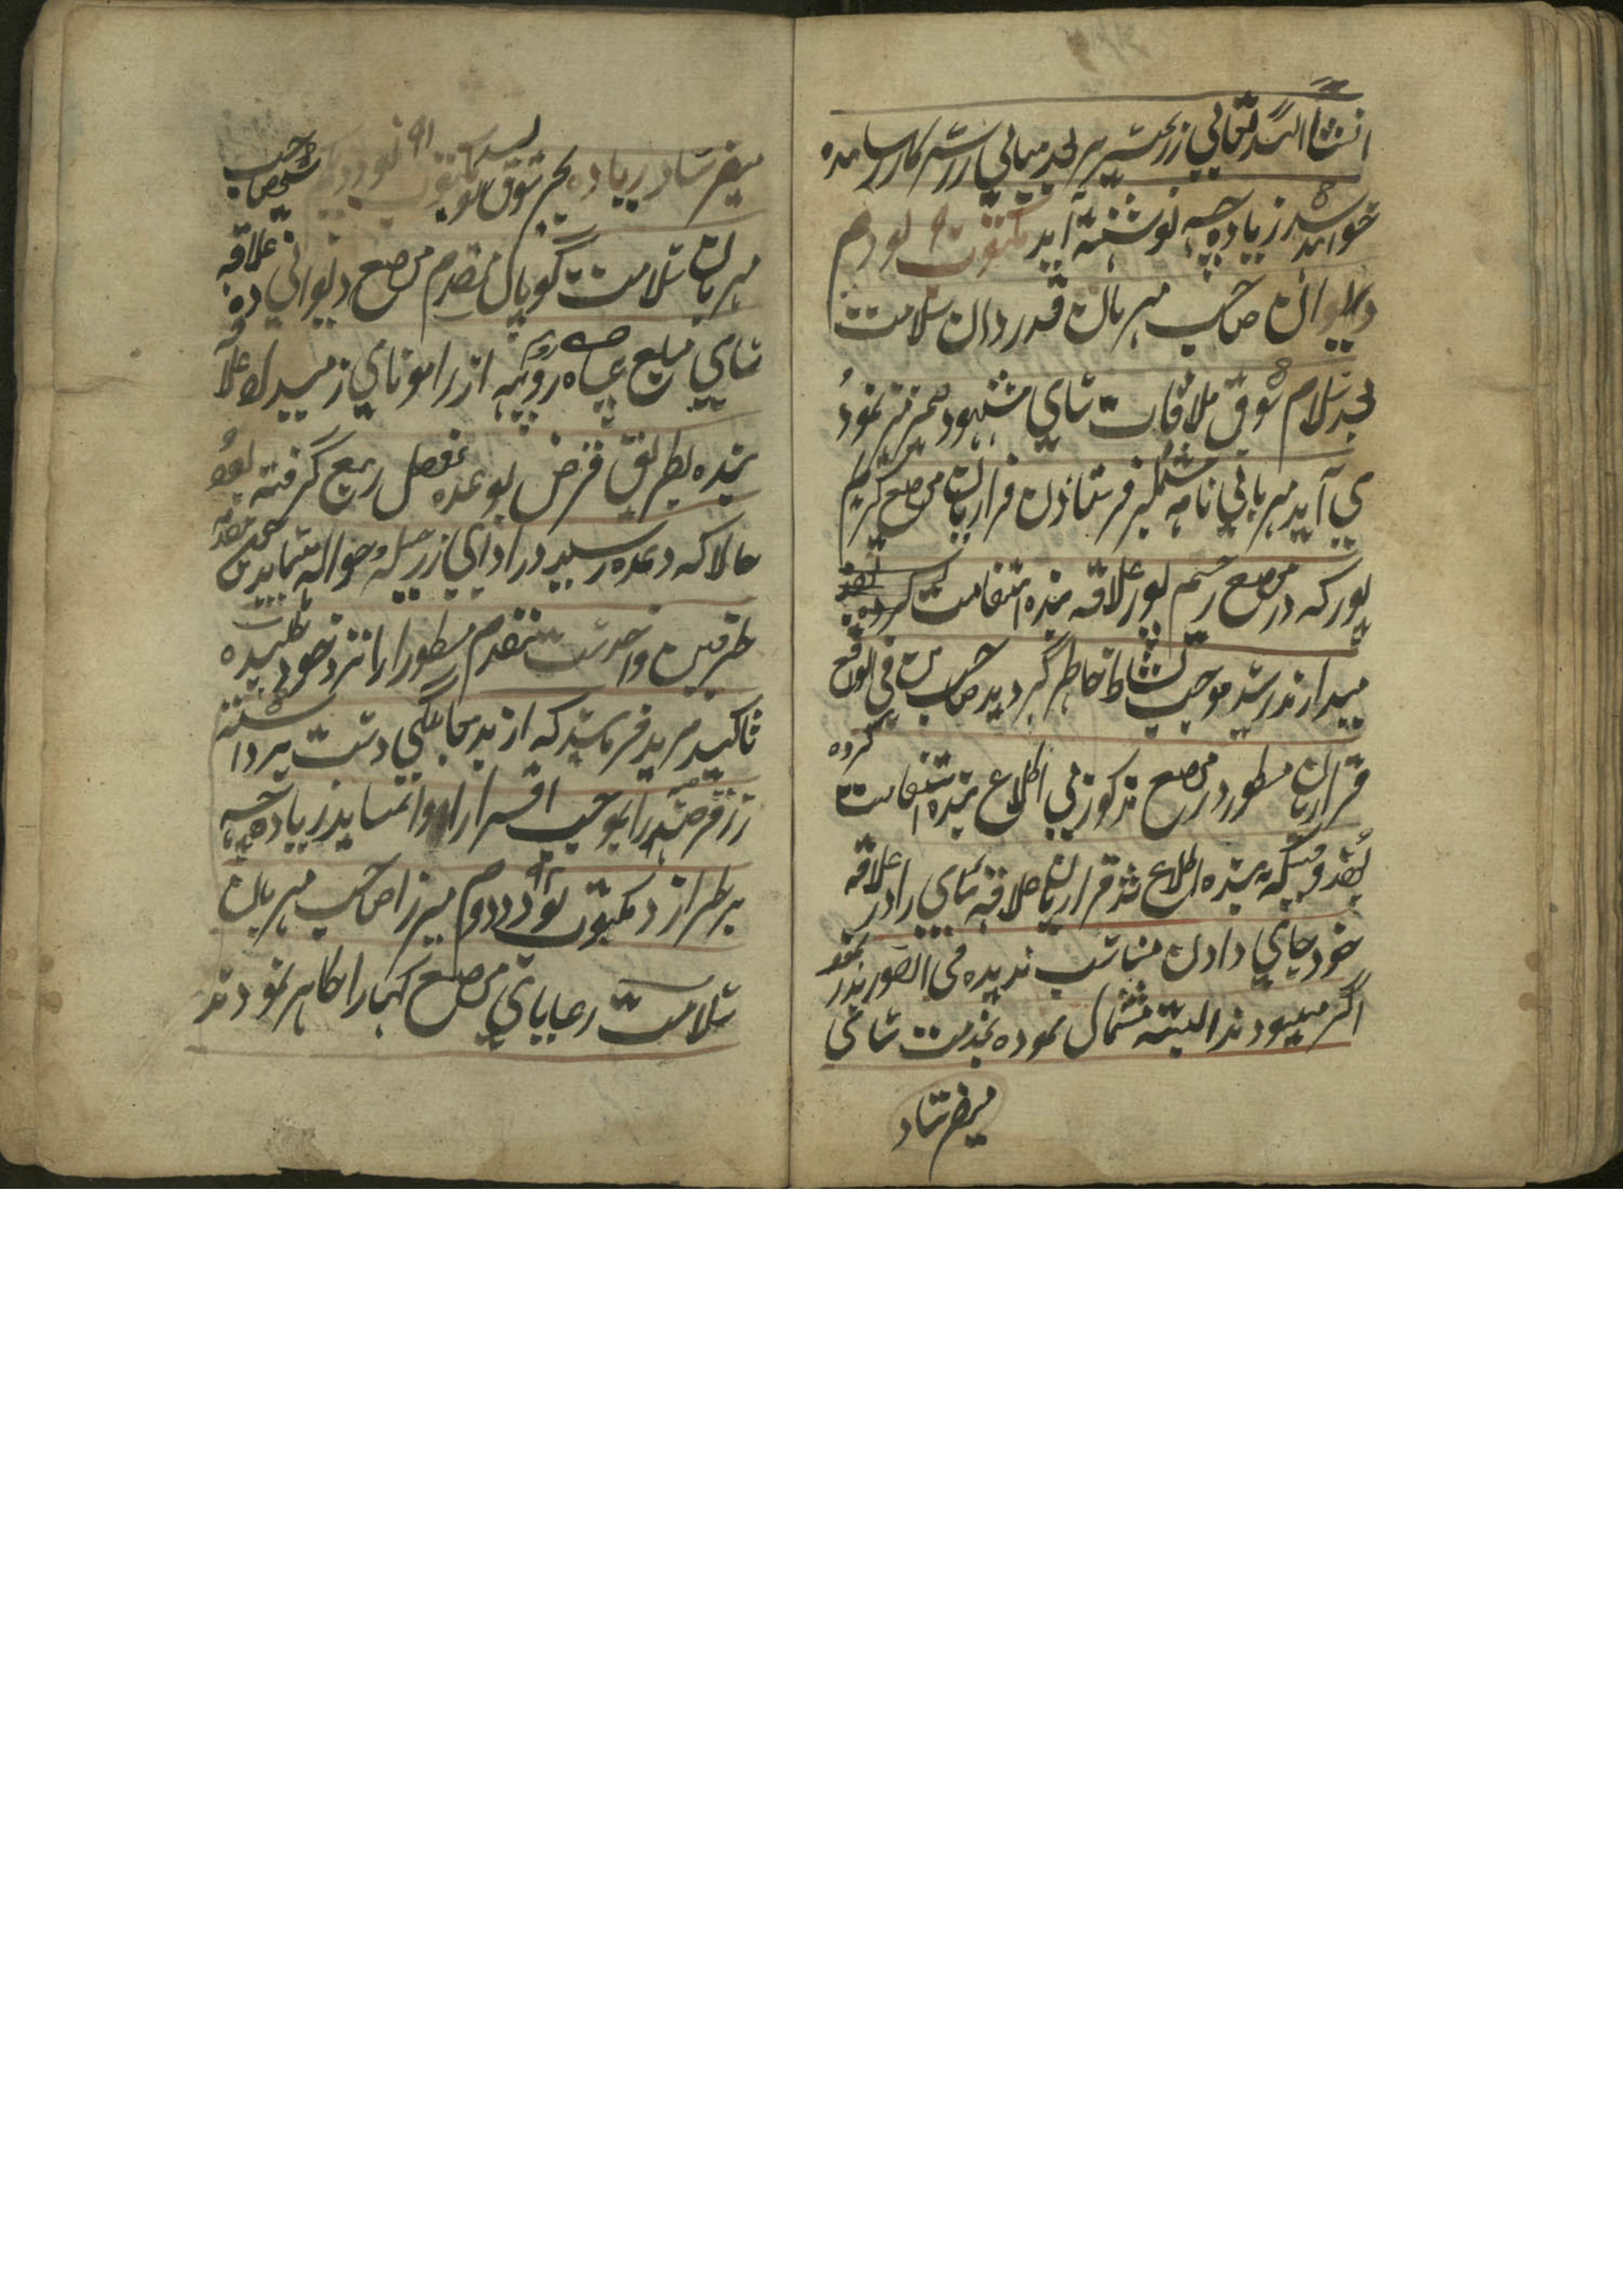 انشاالله تعالی زر بحسیر هر بجد میانی در سرکار رسا مده
خواهد شد زیاده چه نوشته آید مکتوب ۹ نودم
دیوان صاحب مهربان قدردان سلامت
بعد سلام شوق ملاقات سامی مشهود ضمیر نموده
می آید مهربانی نامه فرستادن قراریان موضع کریم
پور که در موضع رستم پور علاقه بنده استقامت کرده
میدارند رسید موجب نشاط خاطر گردید صاحب من فی الواقع
قراریان مسطور در موضع مذکور بی اطلاع بنده استقامت کرده
بودند وقتیکه به بنده اطلاع شد قراریان علاقه سامی را در علاقه
خود جای دادن مناسب ندیده فی الفور بدر نمود
اگر میبودند البته نموده بخدمت سامی
میفرستاد
میفرستاد زیاده بجز شوق چه نویسد مکتوب ۹۱ نود و یکم شیخ صاحب
مهربان سلامت گوپال مقدم موضع دیوانی ده علاقه
سامی مبلغ پنجاه روپیه از راموبای زمیندار علاقه
بنده بطریق قرض بوعده فصل ربیع گرفته بود
حالا که وعده رسید در ادای زر حیله و حواله مینماید
طرفین واحدست مقدم مسطور را نزد خود طلبیده
تاکید مزید فرمایند که از بدمعاملگی دست برداشته
زر قرضه را بموجب اقرار ادا نماید زیاده چه
بر طرازد مکتوب ۹۲ نود و دوم میرزا صاحب مهربان
سلامت رعایای موضع کهمارا ظاهر نمودند